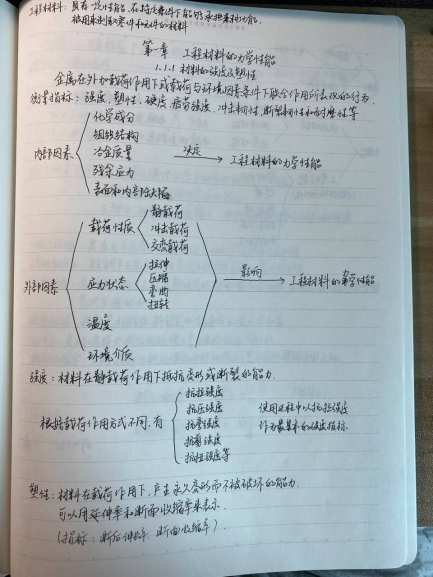 工程材料：具有一定性能，在特定条件下能够承担某种功能，
被用来制取零件和元件的材料
第一章 工程材料的力学性能
1.1.1 材料的强度及塑性
金属在外加载荷作用下或载荷与环境因素条件下联合作用所表现的行为.
衡量指标：强度、塑性、硬度、疲劳强度、冲击韧性、断裂韧性和耐磨性等
内部因素
化学成分
组织结构
冶金质量
残余应力
表面和内部缺陷
决定
工程材料的力学性能
外部因素
载荷性质
静载荷
冲击载荷
交变载荷
应力状态
拉伸
压缩
弯曲
扭转
温度
环境介质
影响
工程材料的力学性能
强度：材料在静载荷作用下抵抗变形或断裂的能力.
根据载荷作用方式不同，有
抗拉强度
抗压强度
抗弯强度
抗剪强度
抗扭强度等
使用过程中以抗拉强度
作为最基本的强度指标
塑性：材料在载荷作用下，产生永久变形而不被破坏的能力.
可以用延伸率和断面收缩率来表示.
(指标：断后伸长率 断面收缩率).